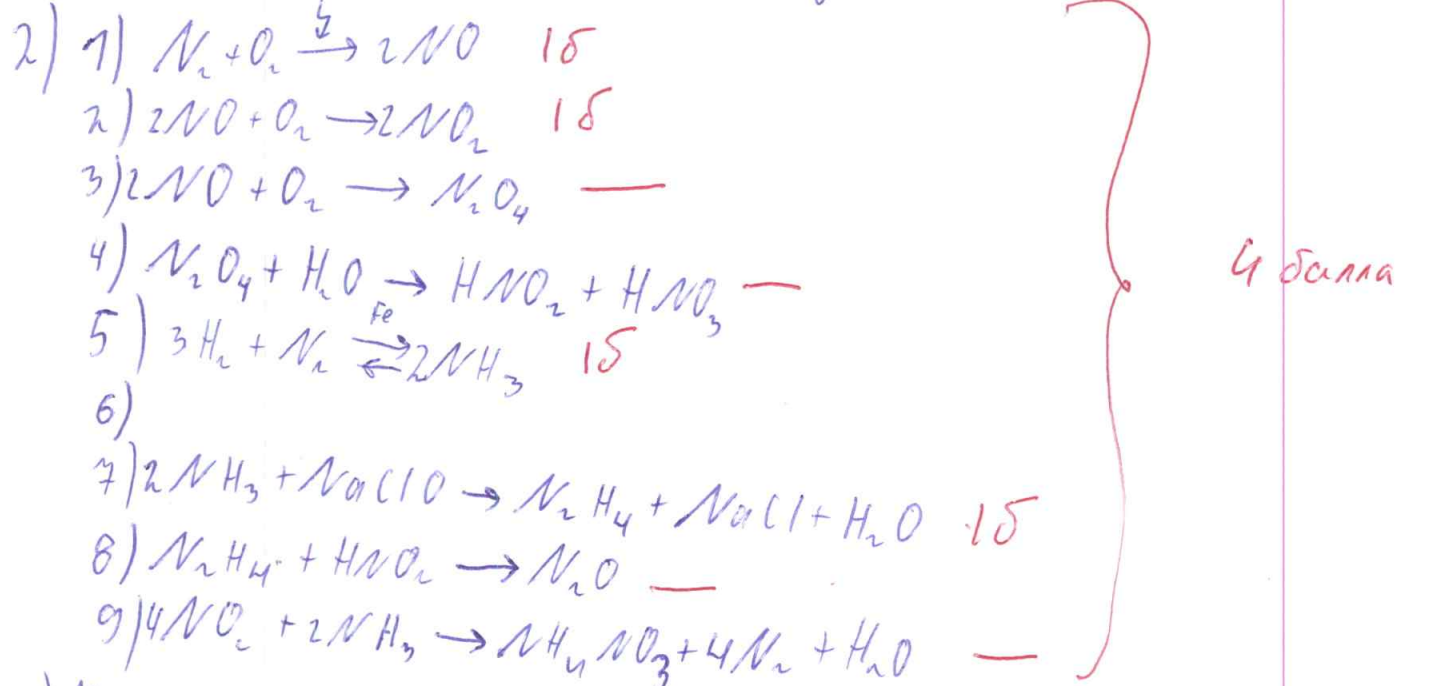 2) 1) N₂ + O₂ →(↯) 2NO 1б
2) 2NO + O₂ → 2NO₂ 1б
3) 2NO + O₂ → N₂O₄ —
4) N₂O₄ + H₂O → HNO₂ + HNO₃ —
4 балла
5) 3H₂ + N₂ ⇄(Fe) 2NH₃ 1б
6)
7) 2NH₃ + NaClO → N₂H₄ + NaCl + H₂O 1б
8) N₂H₄ + HNO₂ → N₂O —
9) 4NO₂ + 2NH₃ → NH₄NO₃ + 4N₂ + H₂O —